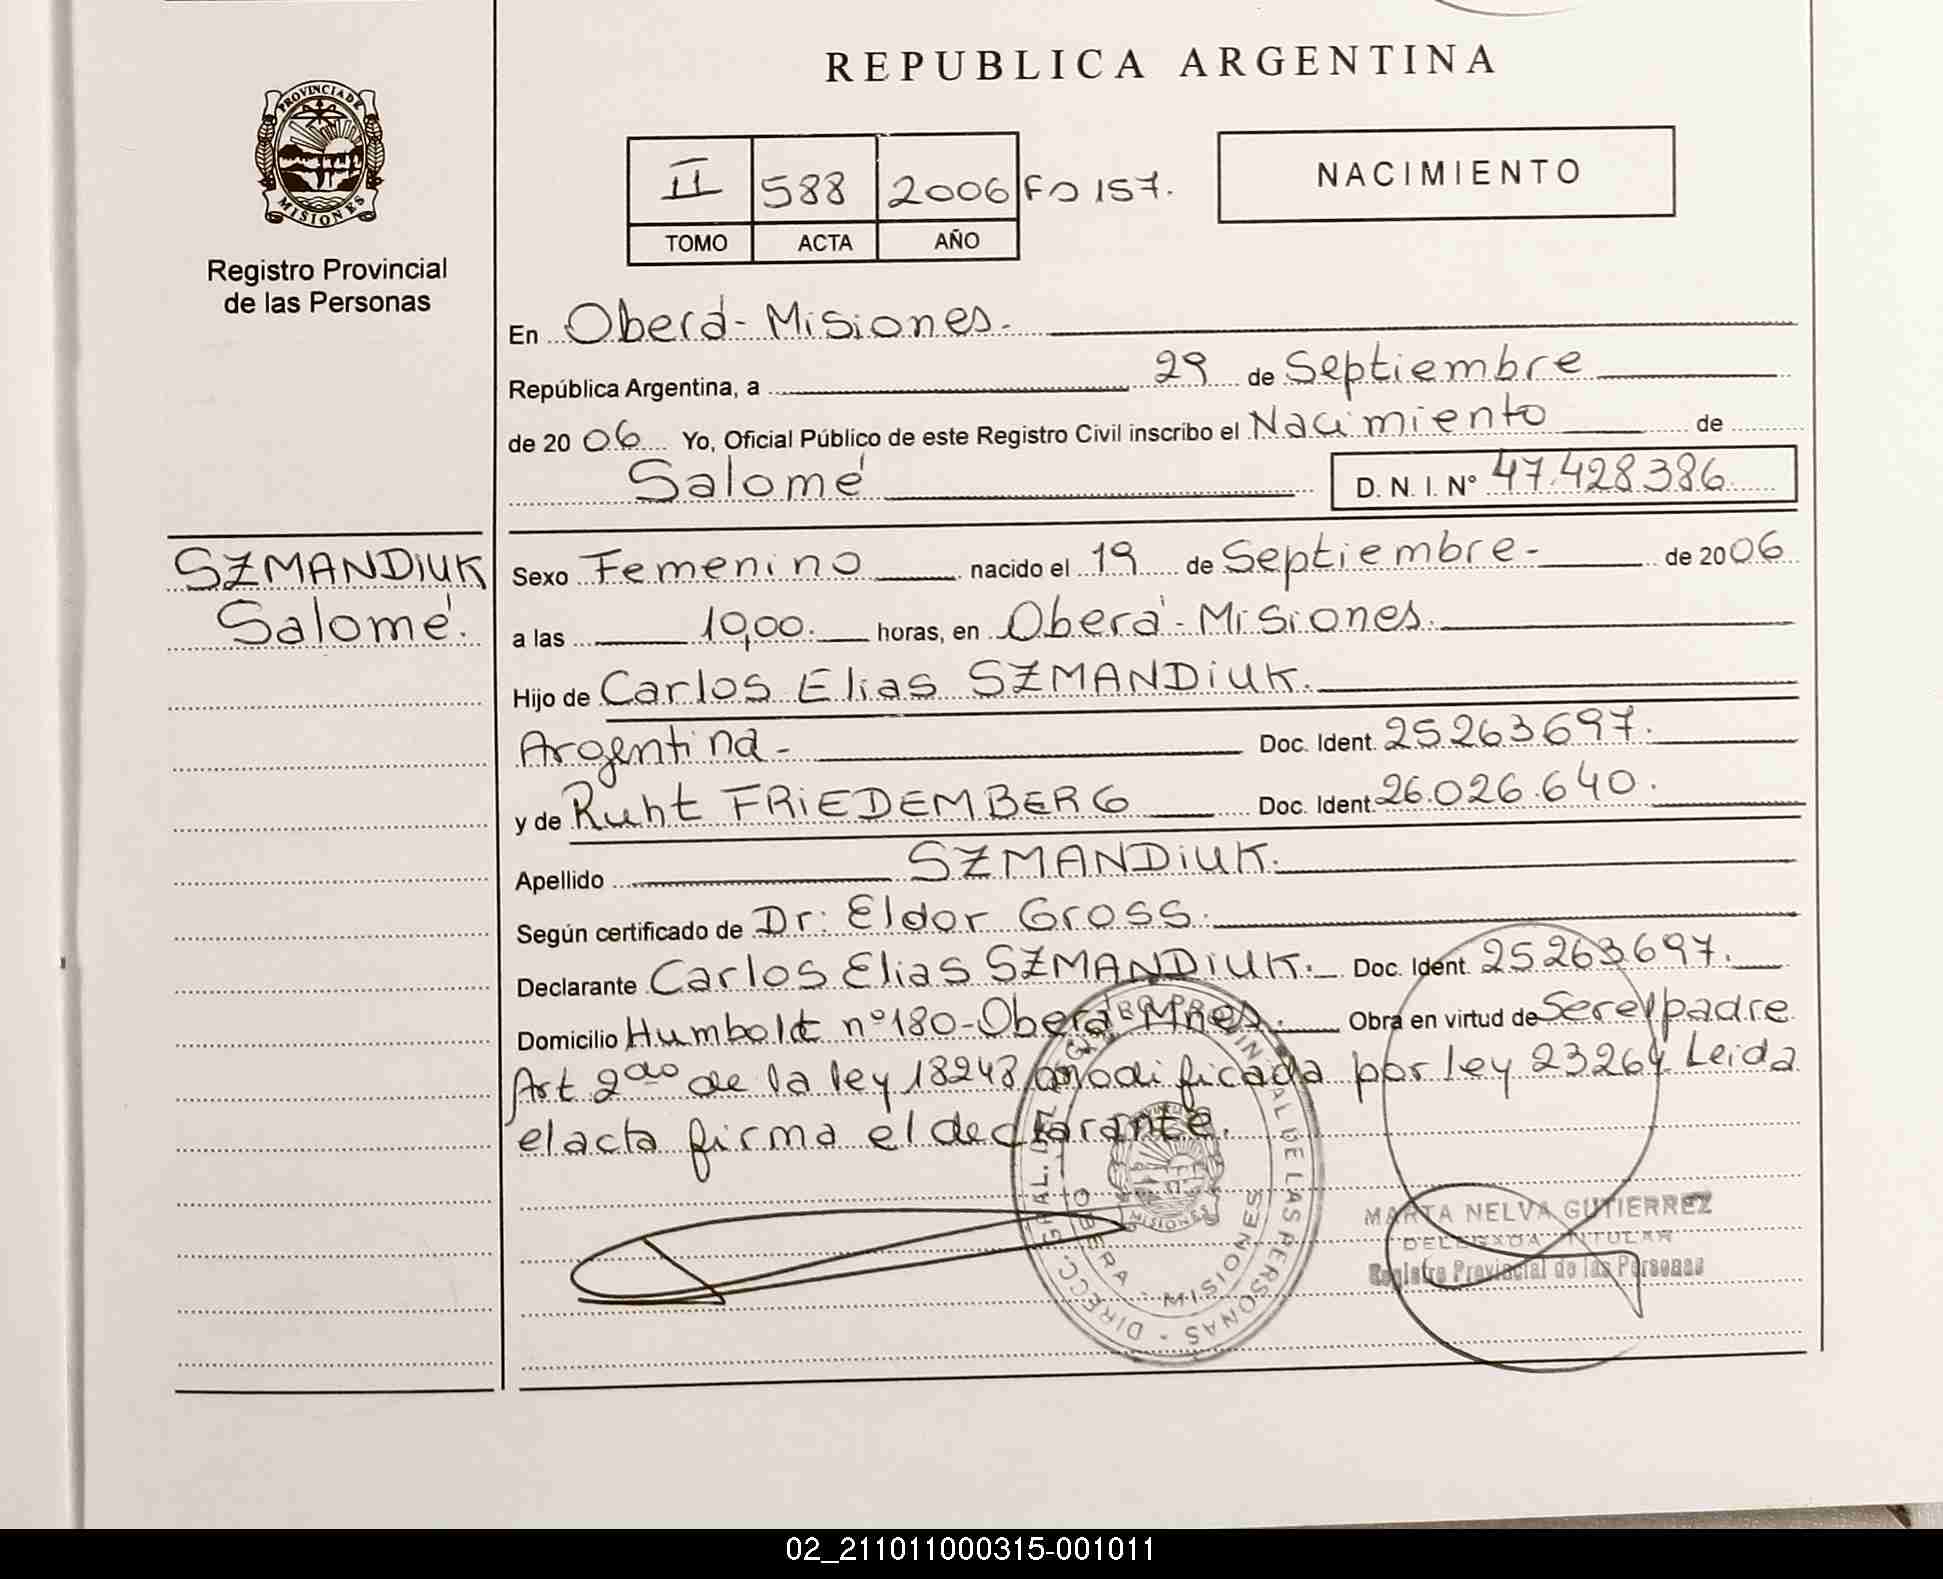 REPUBLICA ARGENTINA
PROVINCIA DE MISIONES
Registro Provincial
de las Personas
II 588 2006 Fo 157.
TOMO ACTA AÑO
NACIMIENTO
En Oberá - Misiones.
República Argentina, a 29 de Septiembre
de 20 06 Yo, Oficial Público de este Registro Civil inscribo el Nacimiento de
Salomé D. N. I. Nº 47.428.386
SZMANDiUK
Salomé.
Sexo Femenino nacido el 19 de Septiembre - de 20 06
a las 10,00. horas, en Oberá - Misiones.
Hijo de Carlos Elias SZMANDiUK.
Argentina - Doc. Ident. 25263697.
y de Ruht FRiEDEMBERG Doc. Ident. 26.026.640.
Apellido SZMANDiUK.
Según certificado de Dr: Eldor Gross.
Declarante Carlos Elias SZMANDiUK. Doc. Ident. 25263697.
Domicilio Humboldt nº 180 - Oberá Mnes. Obra en virtud de Ser el padre
Art 2do de la ley 18248 modificada por ley 23264 Leida
el acta firma el declarante.
DIRECC. GRAL. DEL REGISTRO PROVINCIAL DE LAS PERSONAS
OBERA - MISIONES
MARTA NELVA GUTIERREZ
DELEGADA TITULAR
Registro Provincial de las Personas
02_211011000315-001011